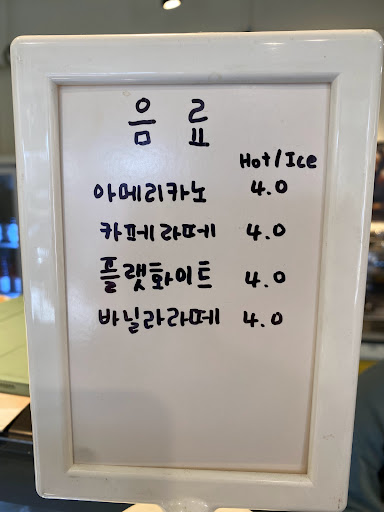 음료
Hot/Ice
아메리카노 4.0
카페라떼 4.0
플랫화이트 4.0
바닐라라떼 4.0